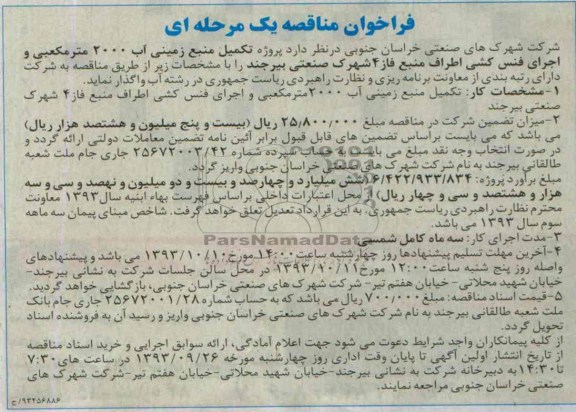 فراخوان مناقصه یک مرحله ای
شرکت شهرک های صنعتی خراسان جنوبی درنظر دارد پروژه تکمیل منبع زمینی آب ۲۰۰۰ مترمکعبی و
اجرای فنس کشی اطراف منبع فاز۴شهرک صنعتی بیرجند را با مشخصات زیر از طریق مناقصه به شرکت
دارای رتبه بندی از معاونت برنامه ریزی و نظارت راهبردی ریاست جمهوری در رشته آب واگذار نماید.
۱-مشخصات کار: تکمیل منبع زمینی آب ۲۰۰۰مترمکعبی و اجرای فنس کشی اطراف منبع فاز۴ شهرک
صنعتی بیرجند
۲-میزان تضمین شرکت در مناقصه مبلغ ۲۵٫۸۰۰٫۰۰۰ ریال (بیست و پنج میلیون و هشتصد هزار ریال)
می باشد که می بایست براساس تضمین های قابل قبول برابر آئین نامه تضمین معاملات دولتی ارائه گردد و
در صورت انتخاب وجه نقد مبلغ می بایست به حساب سپرده شماره ۲۵۶۷۲۰۰۳/۴۲ جاری جام ملت شعبه
طالقانی بیرجند به نام شرکت شهرک های صنعتی خراسان جنوبی واریز گردد.
مبلغ برآورد پروژه: ۶/۴۲۲/۹۳۳/۸۳۴(شش میلیارد و چهارصد و بیست و دو میلیون و نهصد و سی و سه
هزار و هشتصد و سی و چهار ریال) از محل اعتبارات داخلی براساس فهرست بهاء ابنیه سال۱۳۹۳ معاونت
محترم نظارت راهبردی ریاست جمهوری، به این قرارداد تعدیل تعلق خواهد گرفت. شاخص مبنای پیمان سه ماهه
سوم سال ۱۳۹۳ می باشد.
ParsNamadData
۳-مدت اجرای کار: سه ماه کامل شمسی
۴-آخرین مهلت تسلیم پیشنهادها روز چهارشنبه ساعت۱۴:۰۰ مورخ۱۳۹۳/۱۰/۱۰ می باشد و پیشنهادهای
واصله روز پنج شنبه ساعت۱۲:۰۰ مورخ۱۳۹۳/۱۰/۱۱ در محل سالن جلسات شرکت به نشانی بیرجند-
خیابان شهید محلاتی- خیابان هفتم تیر- شرکت شهرک های صنعتی خراسان جنوبی، بازگشایی خواهد گردید.
۵-قیمت اسناد مناقصه: مبلغ ۷۰۰/۰۰۰ ریال می باشد که به حساب شماره ۲۵۶۷۲۰۰۱/۲۸ جاری جام بانک
ملت شعبه طالقانی بیرجند به نام شرکت شهرک های صنعتی خراسان جنوبی واریز و رسید آن به فروشنده اسناد
تحویل گردد.
از کلیه پیمانکاران واجد شرایط دعوت می شود جهت اعلام آمادگی، ارائه سوابق اجرایی و خرید اسناد مناقصه
از تاریخ انتشار اولین آگهی تا پایان وقت اداری روز چهارشنبه مورخه ۱۳۹۳/۰۹/۲۶ در ساعت های۷:۳۰
تا۱۴:۳۰ به دبیرخانه شرکت به نشانی بیرجند-خیابان شهید محلاتی-خیابان هفتم تیر-شرکت شهرک های
صنعتی خراسان جنوبی مراجعه نمایند.
۹۳۲۵۶۸۸۶/ج